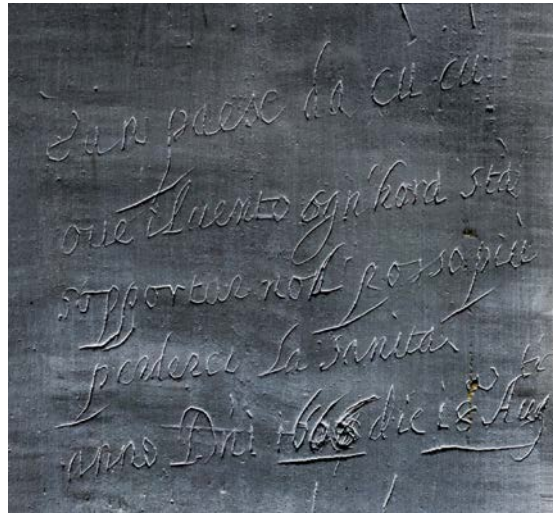 È un paese da cù cù
oue il uento ogn'hora stà
sopportar non possa più
perderei la sanita
anno Dni 1666 die 18 Aug